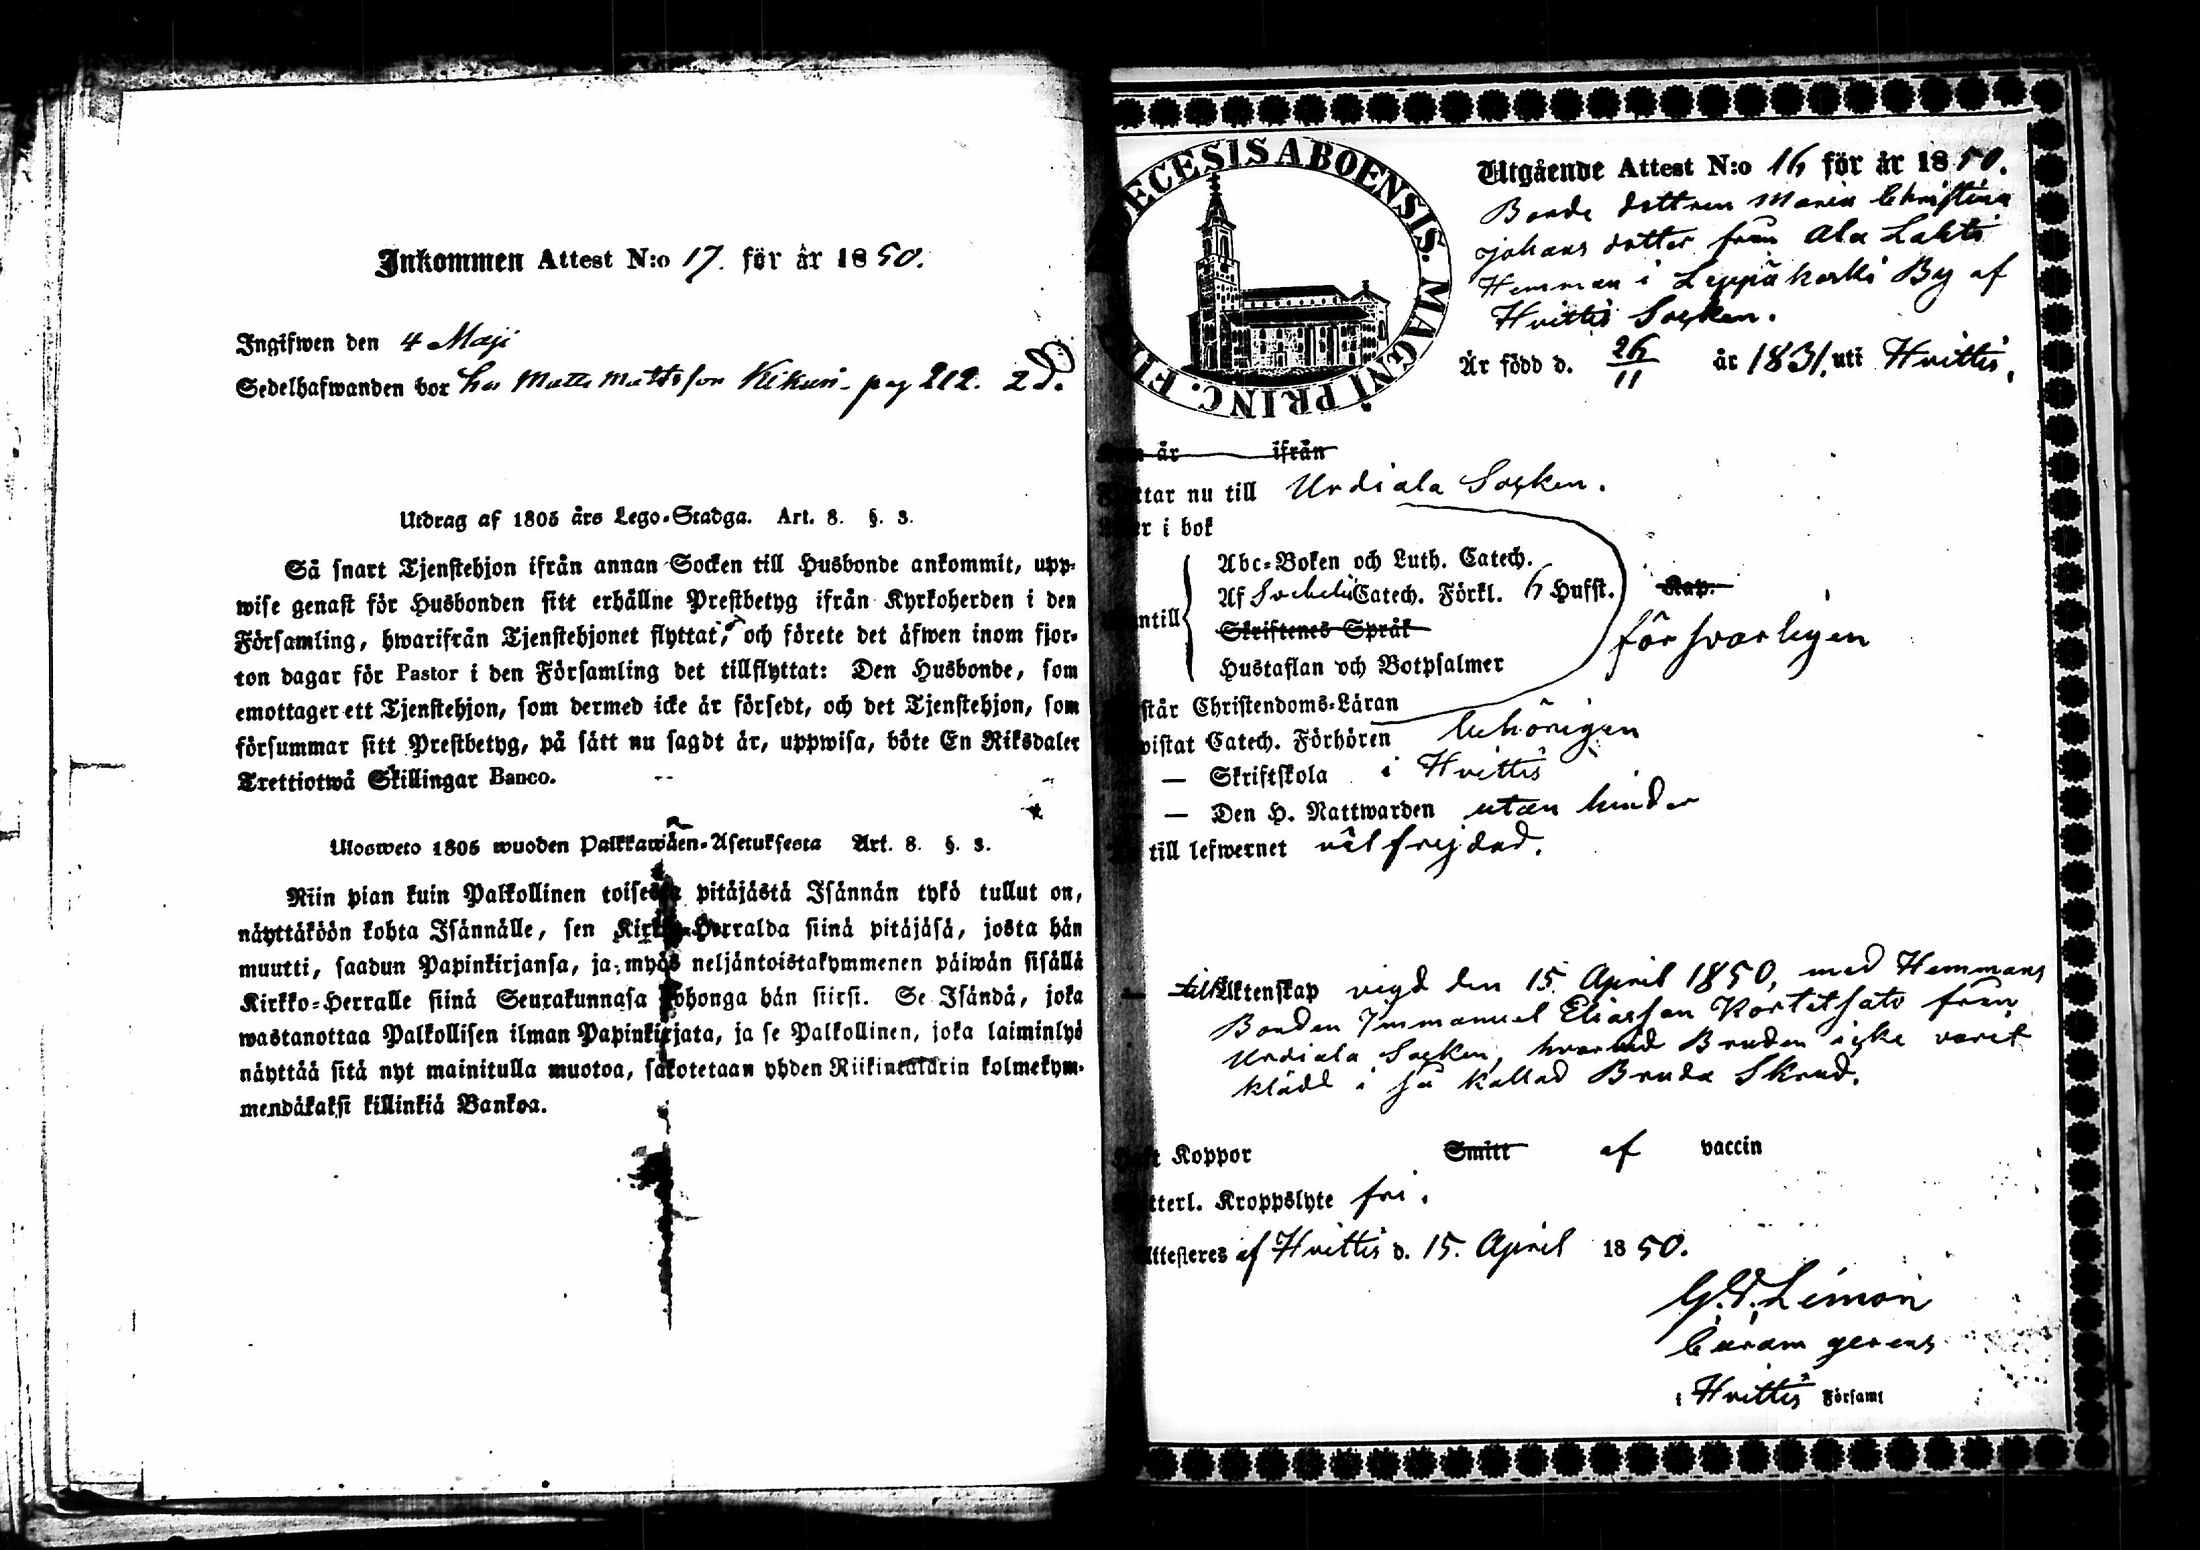 Inkommen Attest N:o 17. för år 1850.
Ingifwen den 4 Maji
Sedelhafwanden bor hos Matts Mattsson Kikuri pag 212.
Utdrag af 1805 års Lego-Stadga. Art. 8. §. 3.
Så snart Tjenstehjon ifrån annan Socken till Husbonde ankommit, upp-
wise genast för Husbonden sitt erhållne Prestbetyg ifrån Kyrkoherden i den
Församling, hwarifrån Tjenstehjonet flyttat, och förete det äfwen inom fjor-
ton dagar för Pastor i den Församling det tillflyttat: Den Husbonde, som
emottager ett Tjenstehjon, som dermed icke är försedt, och det Tjenstehjon, som
försummar sitt Prestbetyg, på sätt nu sagdt är, uppwisa, böte En Riksdaler
Trettiotwå Skillingar Banco.
Ulosweto 1805 wuoden Palkkawäen-Asetuksesta Art. 8. §. 3.
Niin pian kuin Palkollinen toisesta pitäjästä Isännän tykö tullut on,
näyttäköön kohta Isännälle, sen Kirkko-Herralda siinä pitäjäsä, josta hän
muutti, saadun Papinkirjansa, ja myös neljäntoistakymmenen päiwän sisällä
Kirkko-Herralle siinä Seurakunnasa kohonga hän siirsi. Se Isändä, joka
wastanottaa Palkollisen ilman Papinkirjata, ja se Palkollinen, joka laiminlyö
näyttää sitä nyt mainitulla muotoa, sakotetaan yhden Riikintalarin kolmekym-
mendäkaksi killinkiä Bankoa.
ECESIS ABOENSIS. MAGNI PRINC. FI
Utgående Attest N:o 16 för år 1850.
Bonde dottren Maria Christina
Johans dotter från Ala Lahti
Hemman i Leppäkoski By af
Hvittis Socken.
Är född d. 26/11 år 1831, uti Hvittis,
är ifrån
ttar nu till Urdiala Socken.
er i bok
Abc-Boken och Luth. Catech.
Af Catech. Förkl. 6 Hufst. Kap.
ntill
Skriftenes Språk försvarligen
Hustaflan och Botpsalmer
står Christendoms-Läran
wistat Catech. Förhören behörigen
— Skriftskola i Hvittis
— Den H. Nattwarden utan hinder
till lefwernet välfrejdad.
— till Äktenskap vigd den 15 April 1850, med Hemmans
Bonden Immanuel Eliasson Kortetsato från
Urdiala Socken, hvarvid Bruden icke varit
klädd i så kallad Bruda Skrud.
Koppor Smitt af vaccin
tterl. Kroppslyte fri.
Attesteres af Hvittis d. 15. April 1850.
G. Limon
Curam gerens
i Hvittis Församl